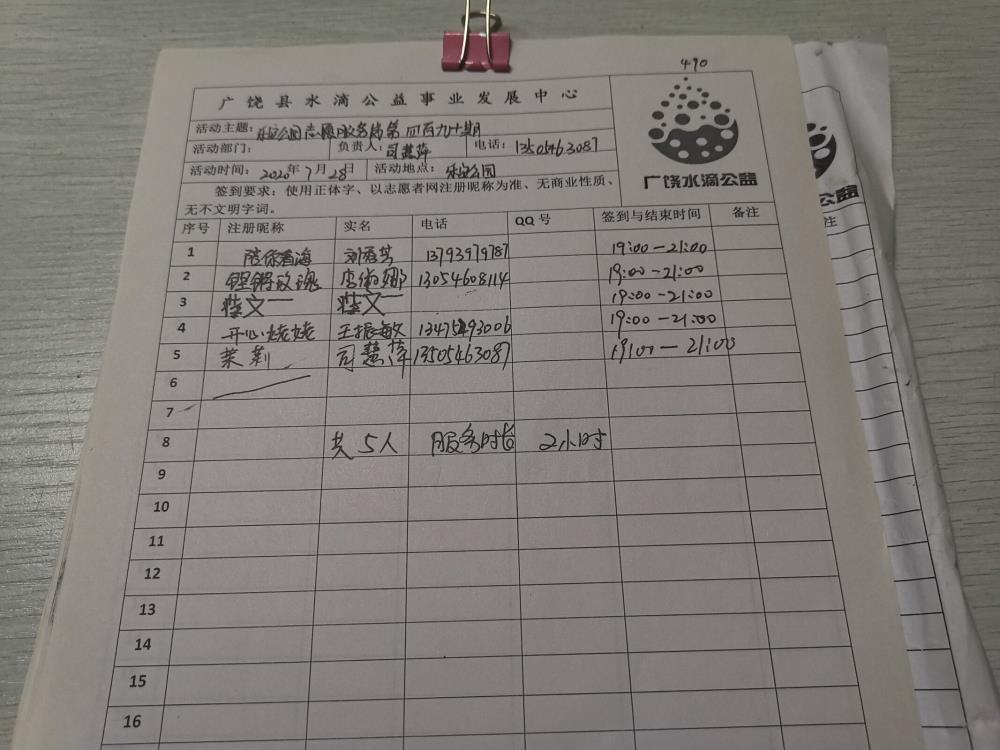 490
广饶县水滴公益事业发展中心
活动主题：乐安公园志愿服务岗第四百九十期
活动部门： 负责人：司慧萍 电话：13505463087
活动时间：2020年7月28日 活动地点：乐安公园
签到要求：使用正体字、以志愿者网注册昵称为准、无商业性质、
无不文明字词。
广饶水滴公益
序号 注册昵称 实名 电话 QQ号 签到与结束时间 备注
1 陪你看海 13793979787 19:00-21:00
2 铿锵玫瑰 13054608114 19:00-21:00
3 19:00-21:00
4 开心姥姥 王振敏 19:00-21:00
5 茉莉 司慧萍 13505463087 19:00-21:00
6
7
8 共5人 服务时长 2小时
9
10
11
12
13
14
15
16
公益
注